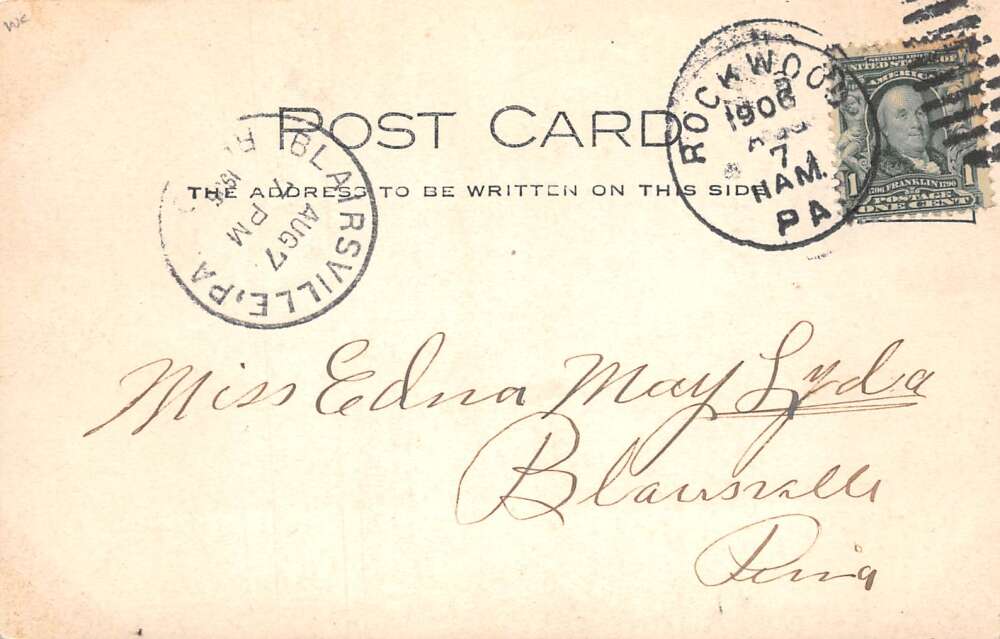 WK
POST CARD
THE ADDRESS TO BE WRITTEN ON THIS SIDE
ROCKWOOD
1906
AUG
7
11 AM.
PA
SERIES 1902
UNITED STATES OF
AMERICA
1 1790 FRANKLIN 1790 1
POSTAGE
ONE CENT
BLAIRSVILLE, PA.
AUG 7
PM
Miss Edna May Lyda
Blairsville
Penna